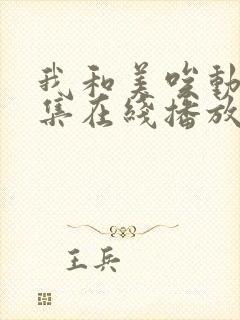 我和美吆動
集在綫播放
王兵